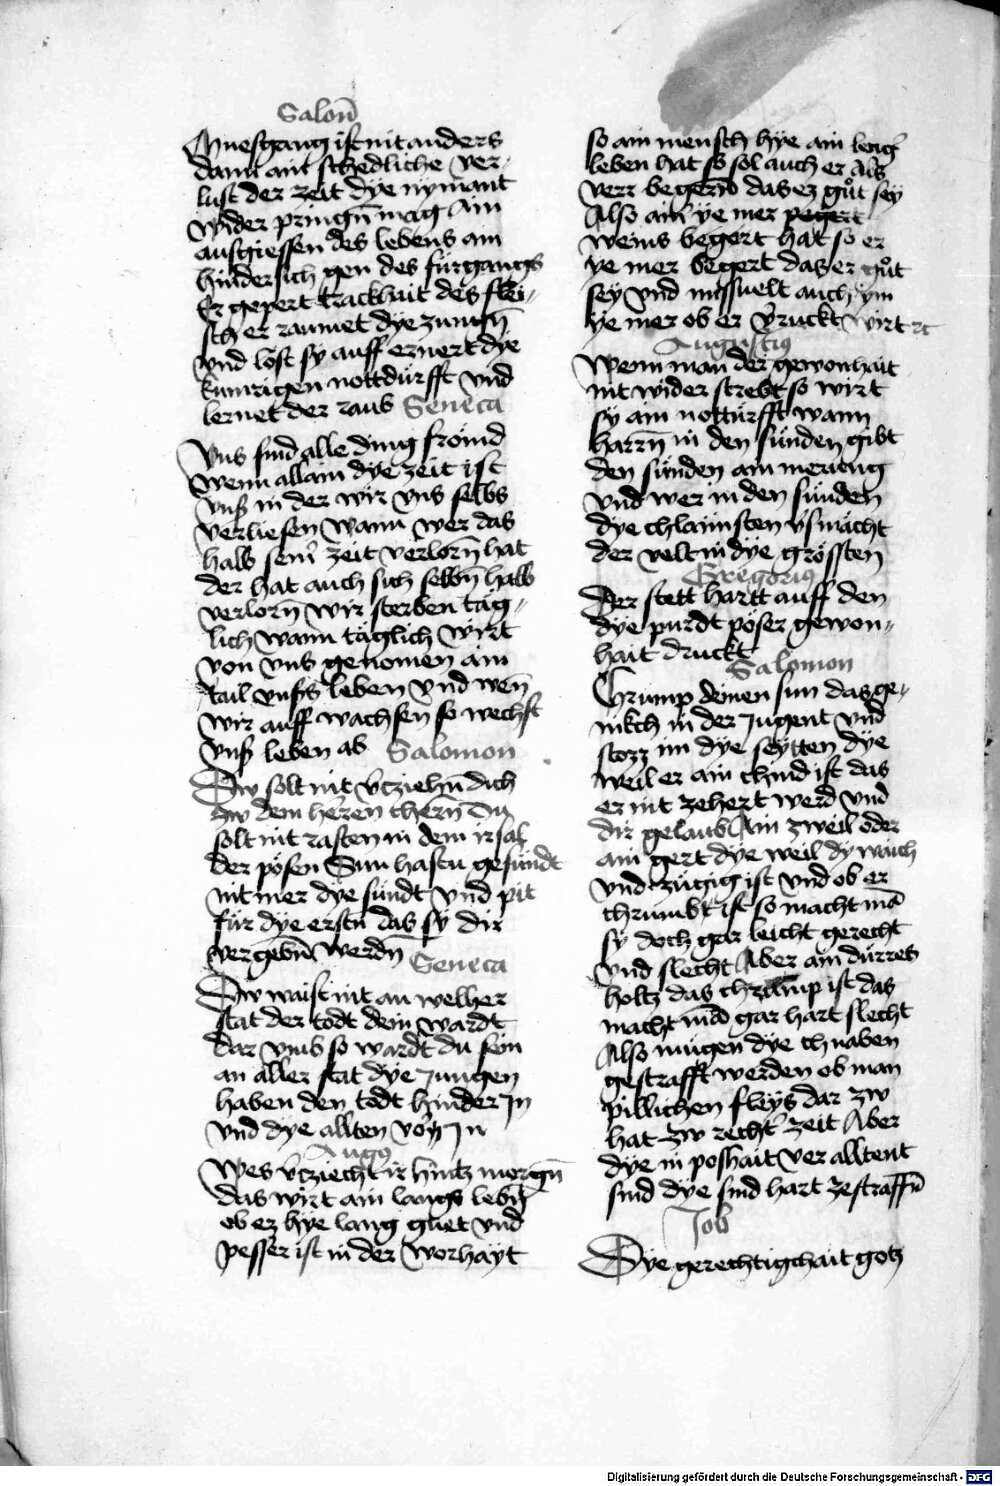 Salom̄
Muesgang ist nit anders
dann ain schedliche ver-
lust der zeit dye nymant
wider pringn̄ mag Ain
ausgiessen des lebens am
hindersich gen des fürgangs
Er gepert trackhait des flei-
sch er raumet dye zungn̄
vnd löst sy auff ernert dye
kunrigen nottdürfft vnd
lernet der raub Seneca
Vns sind alle ding frömd
wenn allain dye zeit ist
vnß in der wir vns selbs
verliesen wann wer das
halb sein̄ zeit verlorn̄ hat
der hat auch sich selbn̄ halb
verlorn̄ wir sterben täg-
lich wann täglich wirt
von vns genomen ain
tail vnsers leben vnd wen̄
wir auff wachsen so wechst
vnß leben ab Salomon
Dw solt nit v̄cziehn̄ dich
zw dem herren chern̄ Du
solt nit rasten in dem irsal
der pösen Sun hastu gesündt
nit mer dye sündt vnd pit
für dye erstn̄ das sy dir
vergebn̄ werdn̄
Seneca
Dw waist nit an welher
stat der todt dein wardt
dar vmb so wardt du sein
an aller stat dye Jungen
haben den todt hinder Jn
vnd dye allten vor Jn
Augꝯ
Wes v̄cziecht ir hintz morgn̄
das wirt ain langs lebn̄
ob ez hye lang gliet vnd
pesser ist in der worhayt
so ain mensch hye ain lenḡ
leben hat so sol auch er als
verr begern̄ das ez gůt sey
Also ain̄ ye mer pegert
weins begert hat so er
ye mer begert das er gůt
sey vnd missuelt auch ym
ye mer ob er v̄ruckt wirt ⁊c
Augustiꝯ
Wenn man der gewonhait
nit wider strebt so wirt
sy ain notturfft wann
harrn̄ in den sünden gibt
den sünden ain merung
vnd wer in den sünden
dye chlainsten v̄smächt
der velt in dye grössten
Gregoriꝯ
Der stett hartt auff den
dye purdt pöser gewon-
hait druckt
Salomon
Chrump deinen sun das ge-
nikch in der Jugent vnd
stozz im dye seytten dye
weil er ain chind ist das
er nit zehert werd vnd
dir gelaub Ain zweil oder
ain gert dye weil dy waich
vnd zügig ist vnd ob er
chrumbt ist so macht mā
sy doch gar leicht gerecht
vnd slecht Aber ain dürres
holtz das chrāmp ist das
macht mā gar hart slecht
Also mügen dye chnaben
gestrafft werden ob man
pillichen fleys dar zw
hat zw recht̄ zeit Aber
dye in poshait ver alltent
sind dye sind hart zestraffn̄
Job
Dye gerechtigchait gotz
Digitalisierung gefördert durch die Deutsche Forschungsgemeinschaft - DFG